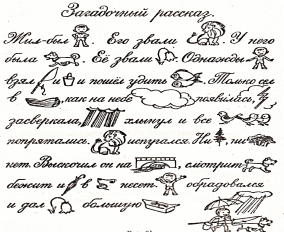 Загадочный рассказ.
Жил-был . Его звали . У него
была . Её звали . Однажды
взял и пошёл удить . Только сел
в , как на небе появилась,
засверкала, хлынул и все
попрятались. испугался. Ни , ни
нет. Выскочил он на , смотрит
бежит и в несёт. обрадовался
и дал большую